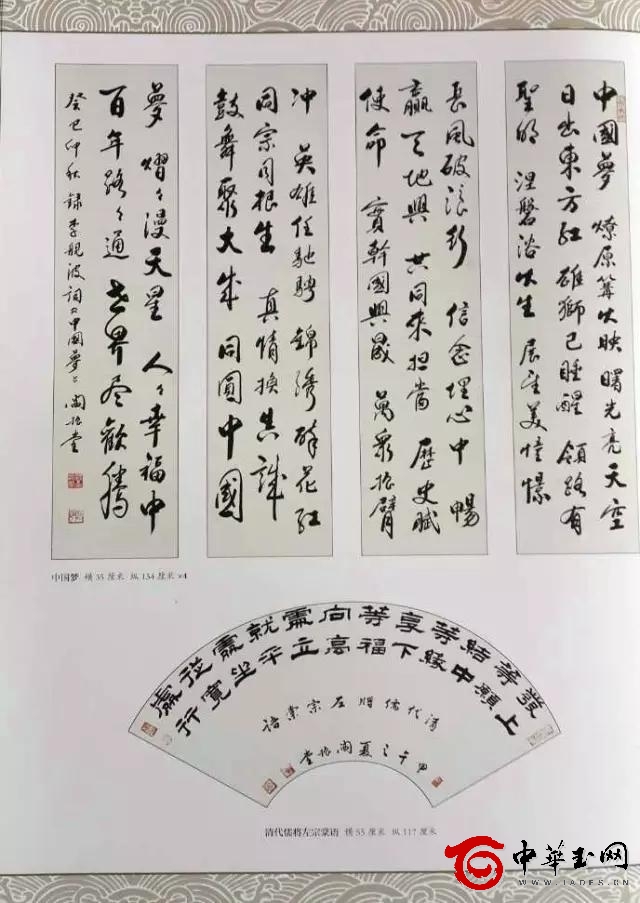 中國夢 燎原篝火映 曙光亮天空
日出東方紅 雄獅已睡醒 領路有
聖明 涅磐浴火生 展望美憧憬
長風破浪行 信念埋心中 暢
贏天地興 共同來担當 歷史賦
使命 實幹國興晟 萬衆振臂
冲 英雄任馳騁 錦綉醉花紅
同宗同根生 真情換真誠
鼓舞聚大成 同圓中國
夢 熠々漫天星 人々幸福中
百年路々通 世界尽歡騰
癸巳仲秋錄李靚波詞《中國夢》閻振堂
中国梦 横 35 厘米 纵 134 厘米 ×4
發上
等願
結中
等緣
享下
等福
向高
處立
就平
處坐
從寬
處行
清代儒將左宗棠語
甲午之夏閻振堂
清代儒将左宗棠语 横 55 厘米 纵 117 厘米
中華玉网
WWW.JADES.CN